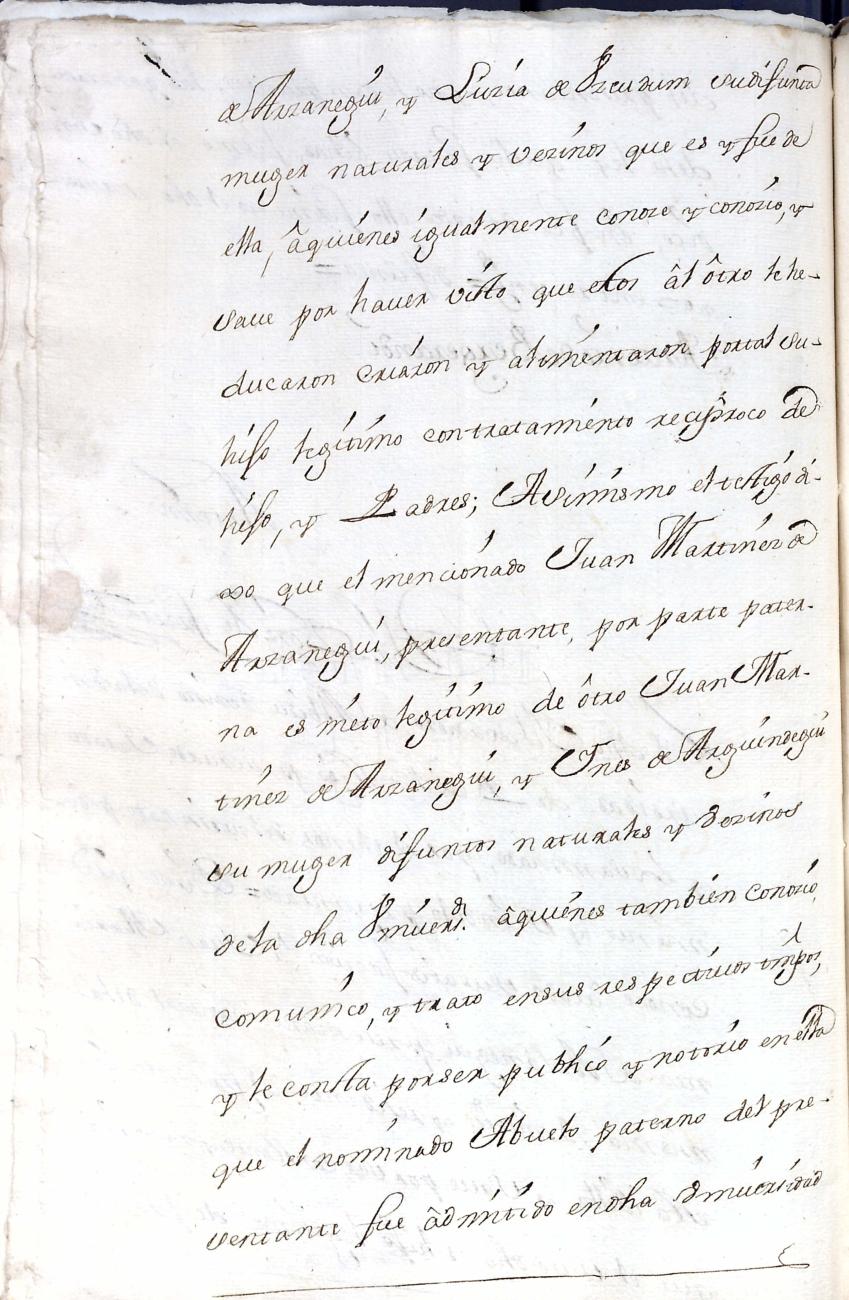 de Arzanegui, y Luzia de Yzeudum su difunta
muger naturales y vezinos que es y fue de
ella, â quienes igualmente conoze y conozio, y
save por haver visto que estos âl ôtro le he-
ducaron criáron y alimentaron por tal su
hijo legitimo con tratamiento reciproco de
hijo, y Padres; Asimismo el testigo di-
xo que el mencionado Juan Martinez de
Arzanegui, presentante, por parte pater-
na es nieto legitimo de ôtro Juan Mar-
tinez de Arzanegui, y Ynes de Arguindegui
su muger difuntos naturales y vezinos
de la dha Vniversd. â quienes tambien conozio,
comunico, y trato en sus respectivos tmpos,
y le consta por ser publico y notorio en ella
que el nominado Abuelo paterno del pre-
sentante fue âdmitido en dha Vniversidad